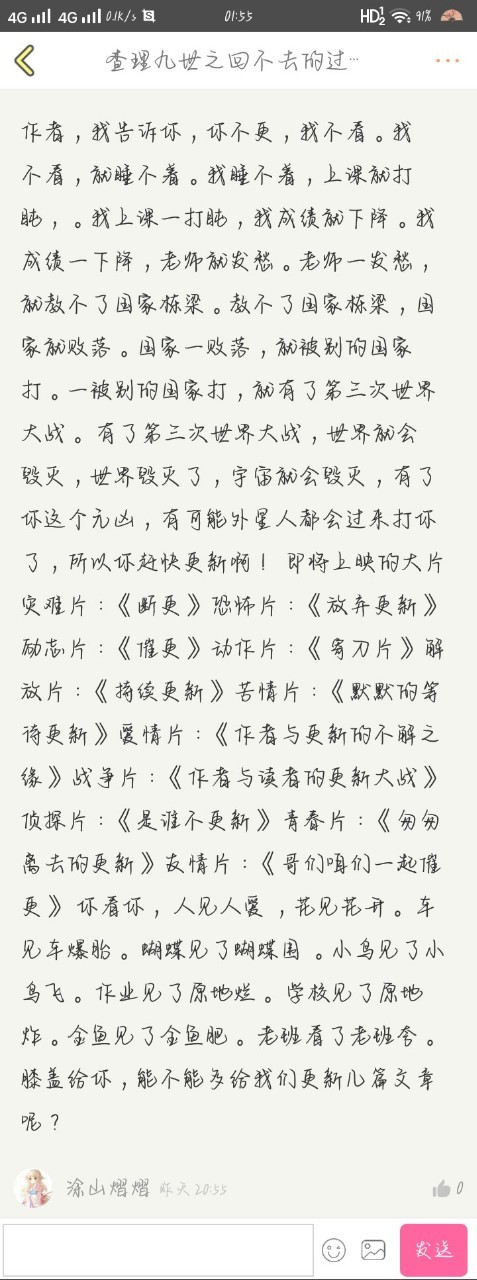 4G 4G 0.1K/s 01:55 HD 1 2 91%
查理九世之回不去的过…
作者，我告诉你，你不更，我不看。我
不看，就睡不着。我睡不着，上课就打
盹，。我上课一打盹，我成绩就下降。我
成绩一下降，老师就发愁。老师一发愁，
就教不了国家栋梁。教不了国家栋梁，国
家就败落。国家一败落，就被别的国家
打。一被别的国家打，就有了第三次世界
大战。有了第三次世界大战，世界就会
毁灭，世界毁灭了，宇宙就会毁灭，有了
你这个元凶，有可能外星人都会过来打你
了，所以你赶快更新啊！ 即将上映的大片
灾难片：《断更》恐怖片：《放弃更新》
励志片：《催更》动作片：《寄刀片》解
放片：《持续更新》苦情片：《默默的等
待更新》爱情片：《作者与更新的不解之
缘》战争片：《作者与读者的更新大战》
侦探片：《是谁不更新》青春片：《匆匆
离去的更新》友情片：《哥们咱们一起催
更》 你看你，人见人爱 ，花见花开。车
见车爆胎。蝴蝶见了蝴蝶围 。小鸟见了小
鸟飞。作业见了原地烂。学校见了原地
炸。金鱼见了金鱼肥。老班看了老班夸。
膝盖给你，能不能多给我们更新几篇文章
呢？
涂山熠熠 昨天20:55 0
发送